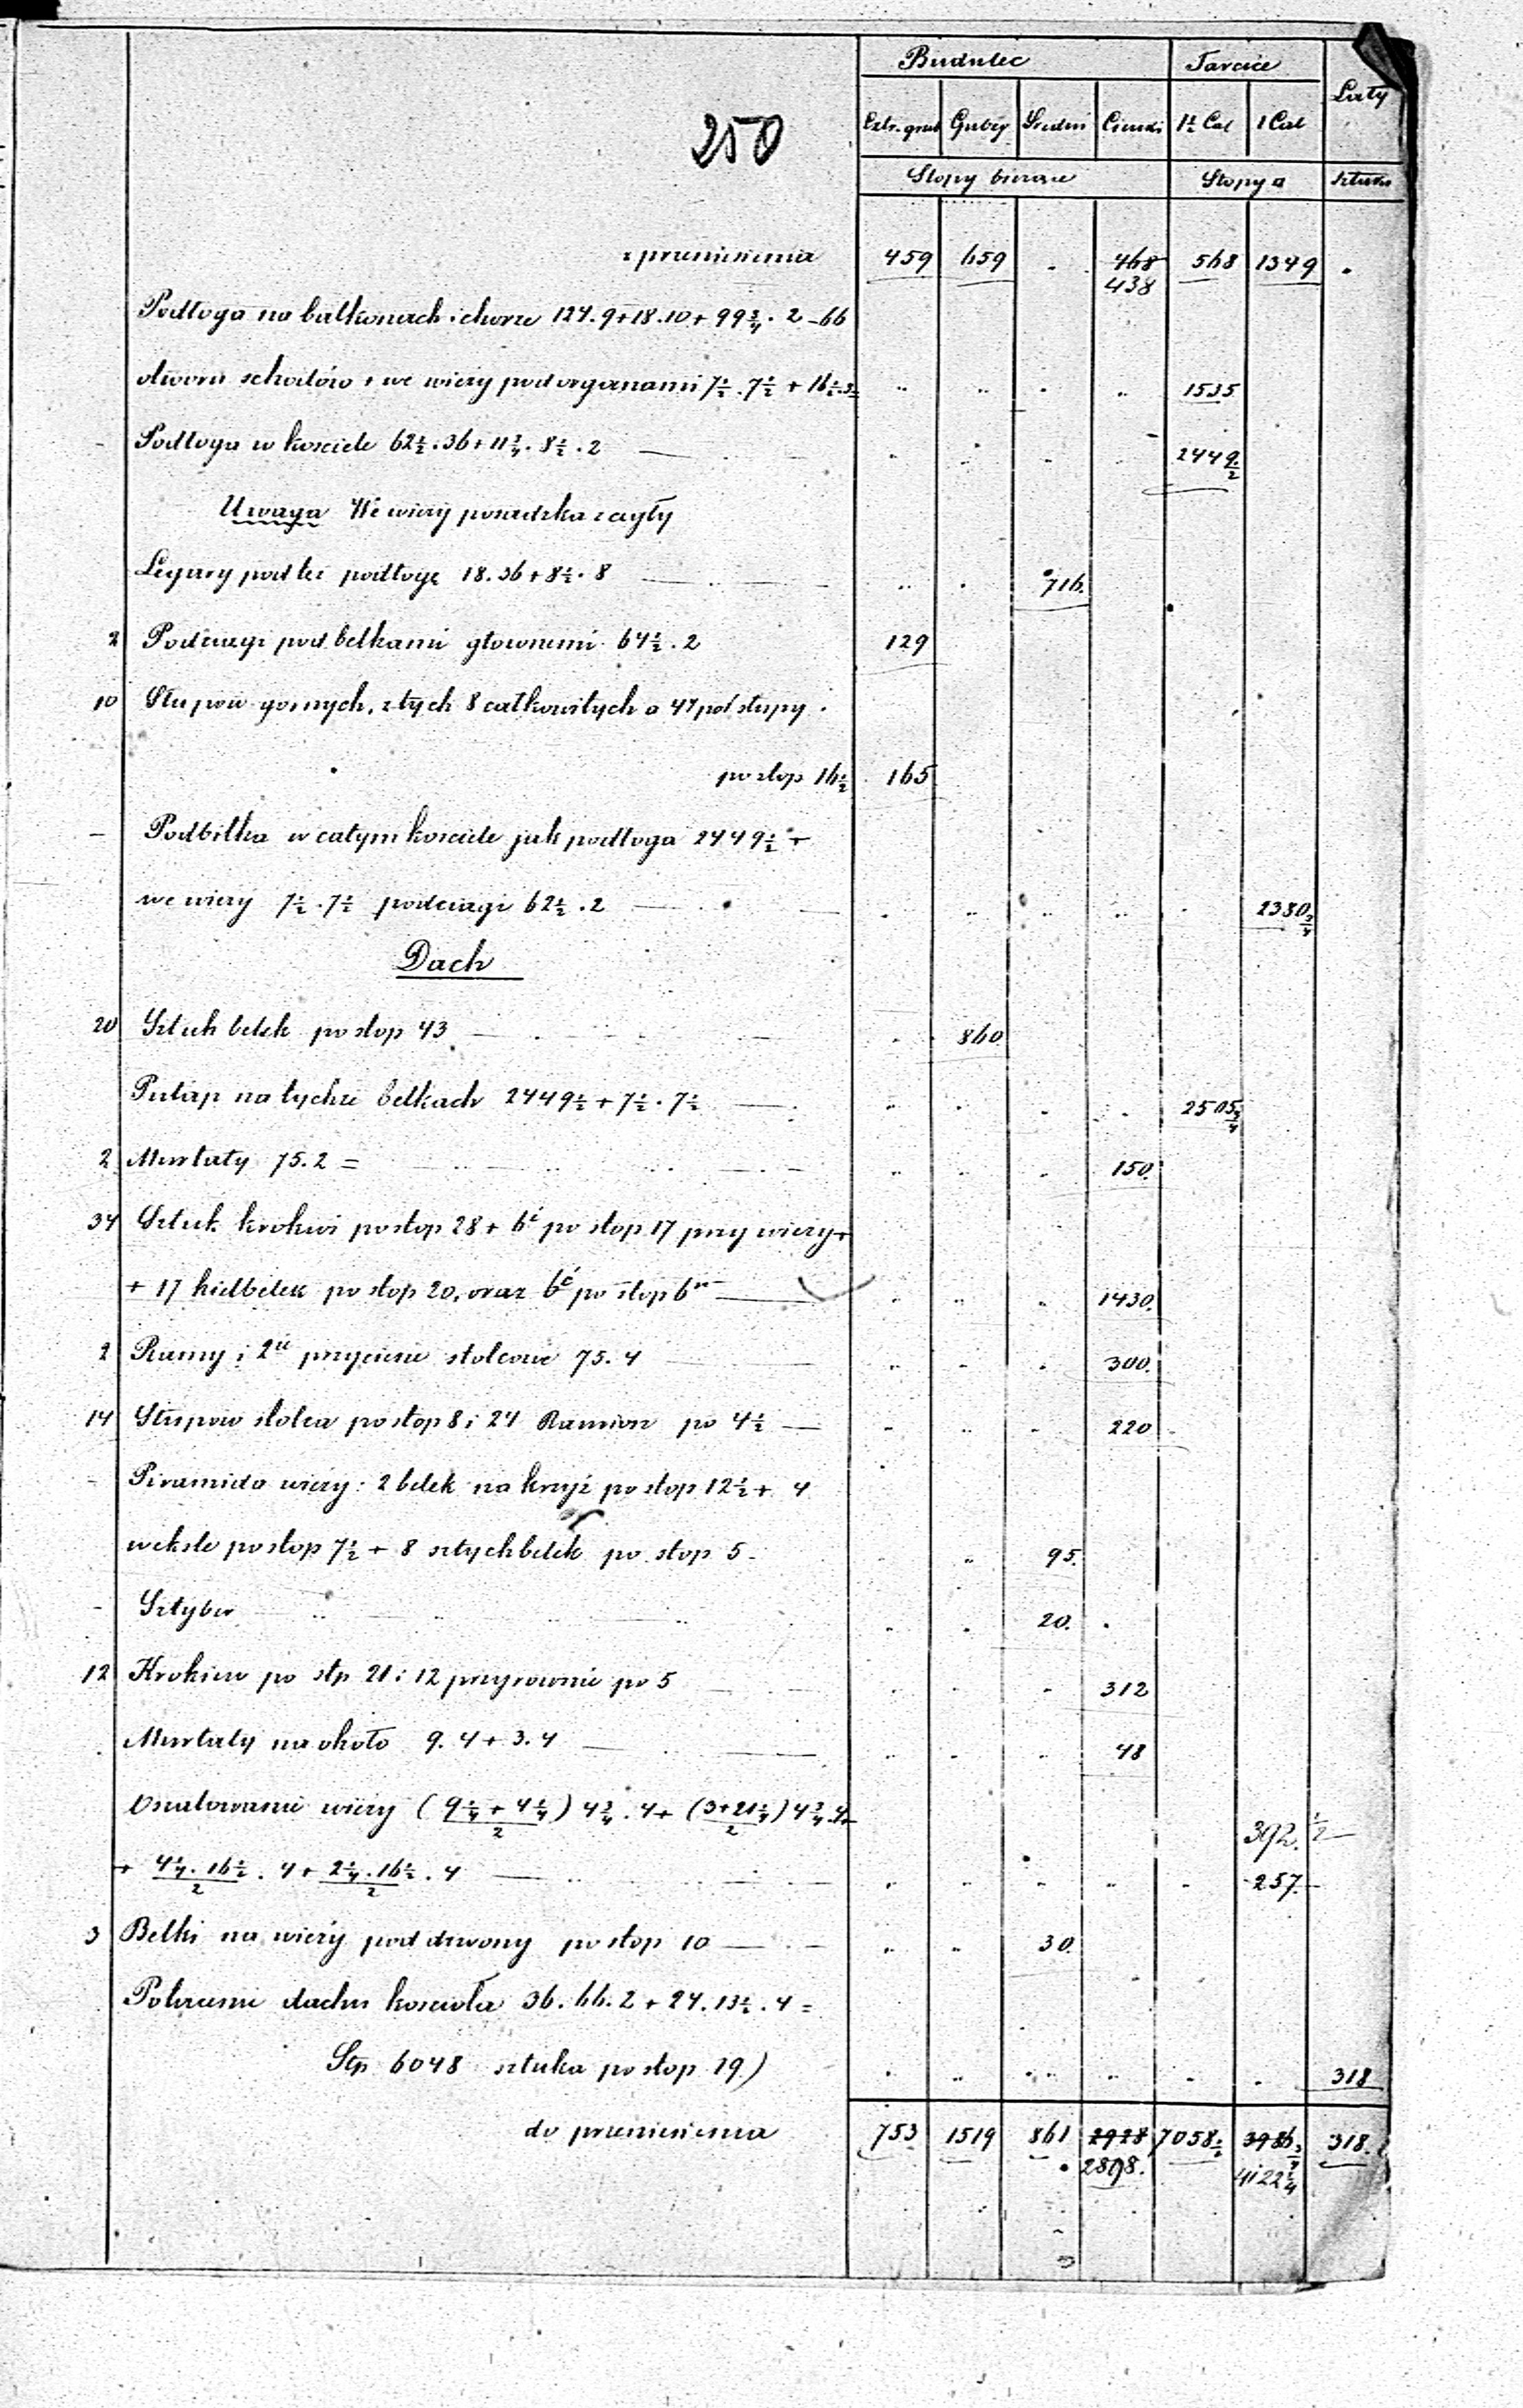 Budulec Tarcice Łaty
Extr. grub Gruby Średni Cienki 1½ Cal 1 Cal
250
Stopy bieżące Stopy □ sztuka
z przeniesienia 459 659 . 468 568 1349 .
438
Podłoga na balkonach i chórze 124.9+18.10+99¾.2-66
otworu schodów i we wieży pod organami 7½.7½ + 16½.3= 1535
- Podłoga w kościele 62½.36+11¾.8½.2 2449½
Uwaga We wieży posadzka z cegły
Legary pod tę podłogę 18.36+8½.8 716.
2 Podciągi pod belkami głownemi 64½.2 129
10 Słupow gornych, z tych 8 całkowitych a 4 poł słupy.
po stop 16½ 165
- Podbitka w całym kosciele jak podłoga 2449½ +
we wieży 7½.7½ podciągi 62½.2 2380¾
Dach
20 Sztuk belek po stop 43 860
Pułap na tychże belkach 2449½+7½.7½ 2505¾
2 Murłaty 75.2 = 150.
34 Sztuk krokwi po stop 28+6ć po stop 17 przy wieży+
+ 17 hielbelek po stop 20, oraz 6ć po stop 6 1430.
2 Ramy i 2ie przyciesie stolcowe 75.4 300.
14 Słupow stolca po stop 8 i 24 Ramion po 4½ 220
- Piramida wieży: 2 belek na krzyż po stop 12½+ 4
weksle po stop 7½ + 8 sztychbelek po stop 5 95.
- Sztyber 20.
12 Krokiew po stp 21 i 12 przyrownie po 5 312
Murłaty na około 9.4+3.4 48
Oszalowanie wieży (9¼+4¼)/2 4¾.4+ (3+21¼)/2 4¾.4+ 392.½
+ 4¼.16½/2 .4+ 2¼.16½/2 .4 257.
3 Belki na wieży pod dzwony po stop 10 30.
Pokrycie dachu kościoła 36.66.2+24.13½.4=
Stp 6048 sztuka po stop 19) 318
do przeniesienia 753 1519 861 2928 7058½ 3986¾ 318.
2898. 4122¼